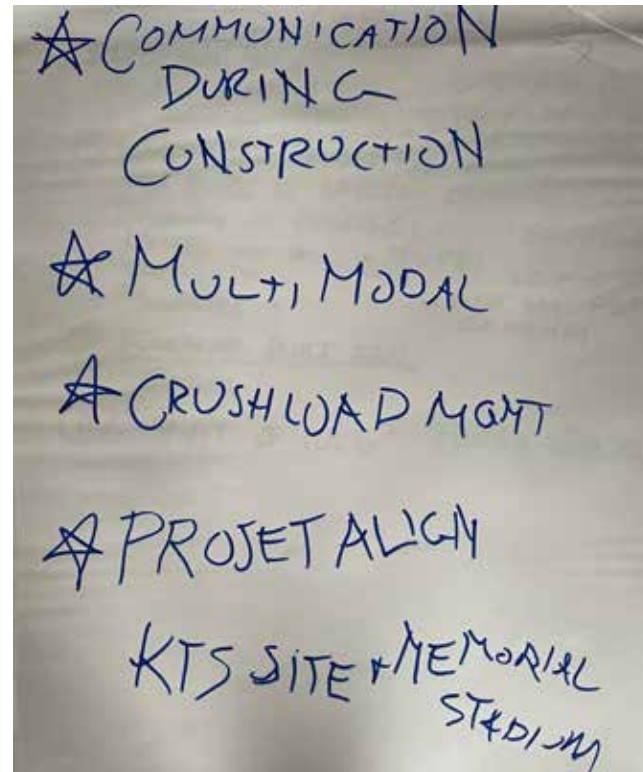 ☆ COMMUNICATION
DURING
CONSTRUCTION
☆ MULTI, MODAL
☆ CRUSHLOAD MGMT
☆ PROJET ALIGN
KTS SITE + MEMORIAL
STADIUM